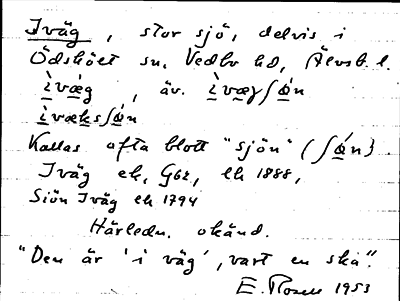 Iväg, stor sjö, delvis i
Ödskölt sn. Vedbo hd, Älvsb. l.
ìvæ̀g, äv. ìvægʃø̀n
ìvæksʃø̀n
Kallas ofta blott "sjön" (ʃø̀n)
Iväg ek, Gbk, ek 1888,
Siön Iväg ek 1794
Härledn. okänd.
"Den är 'i väg', vart en ska".
E. Rosell 1953